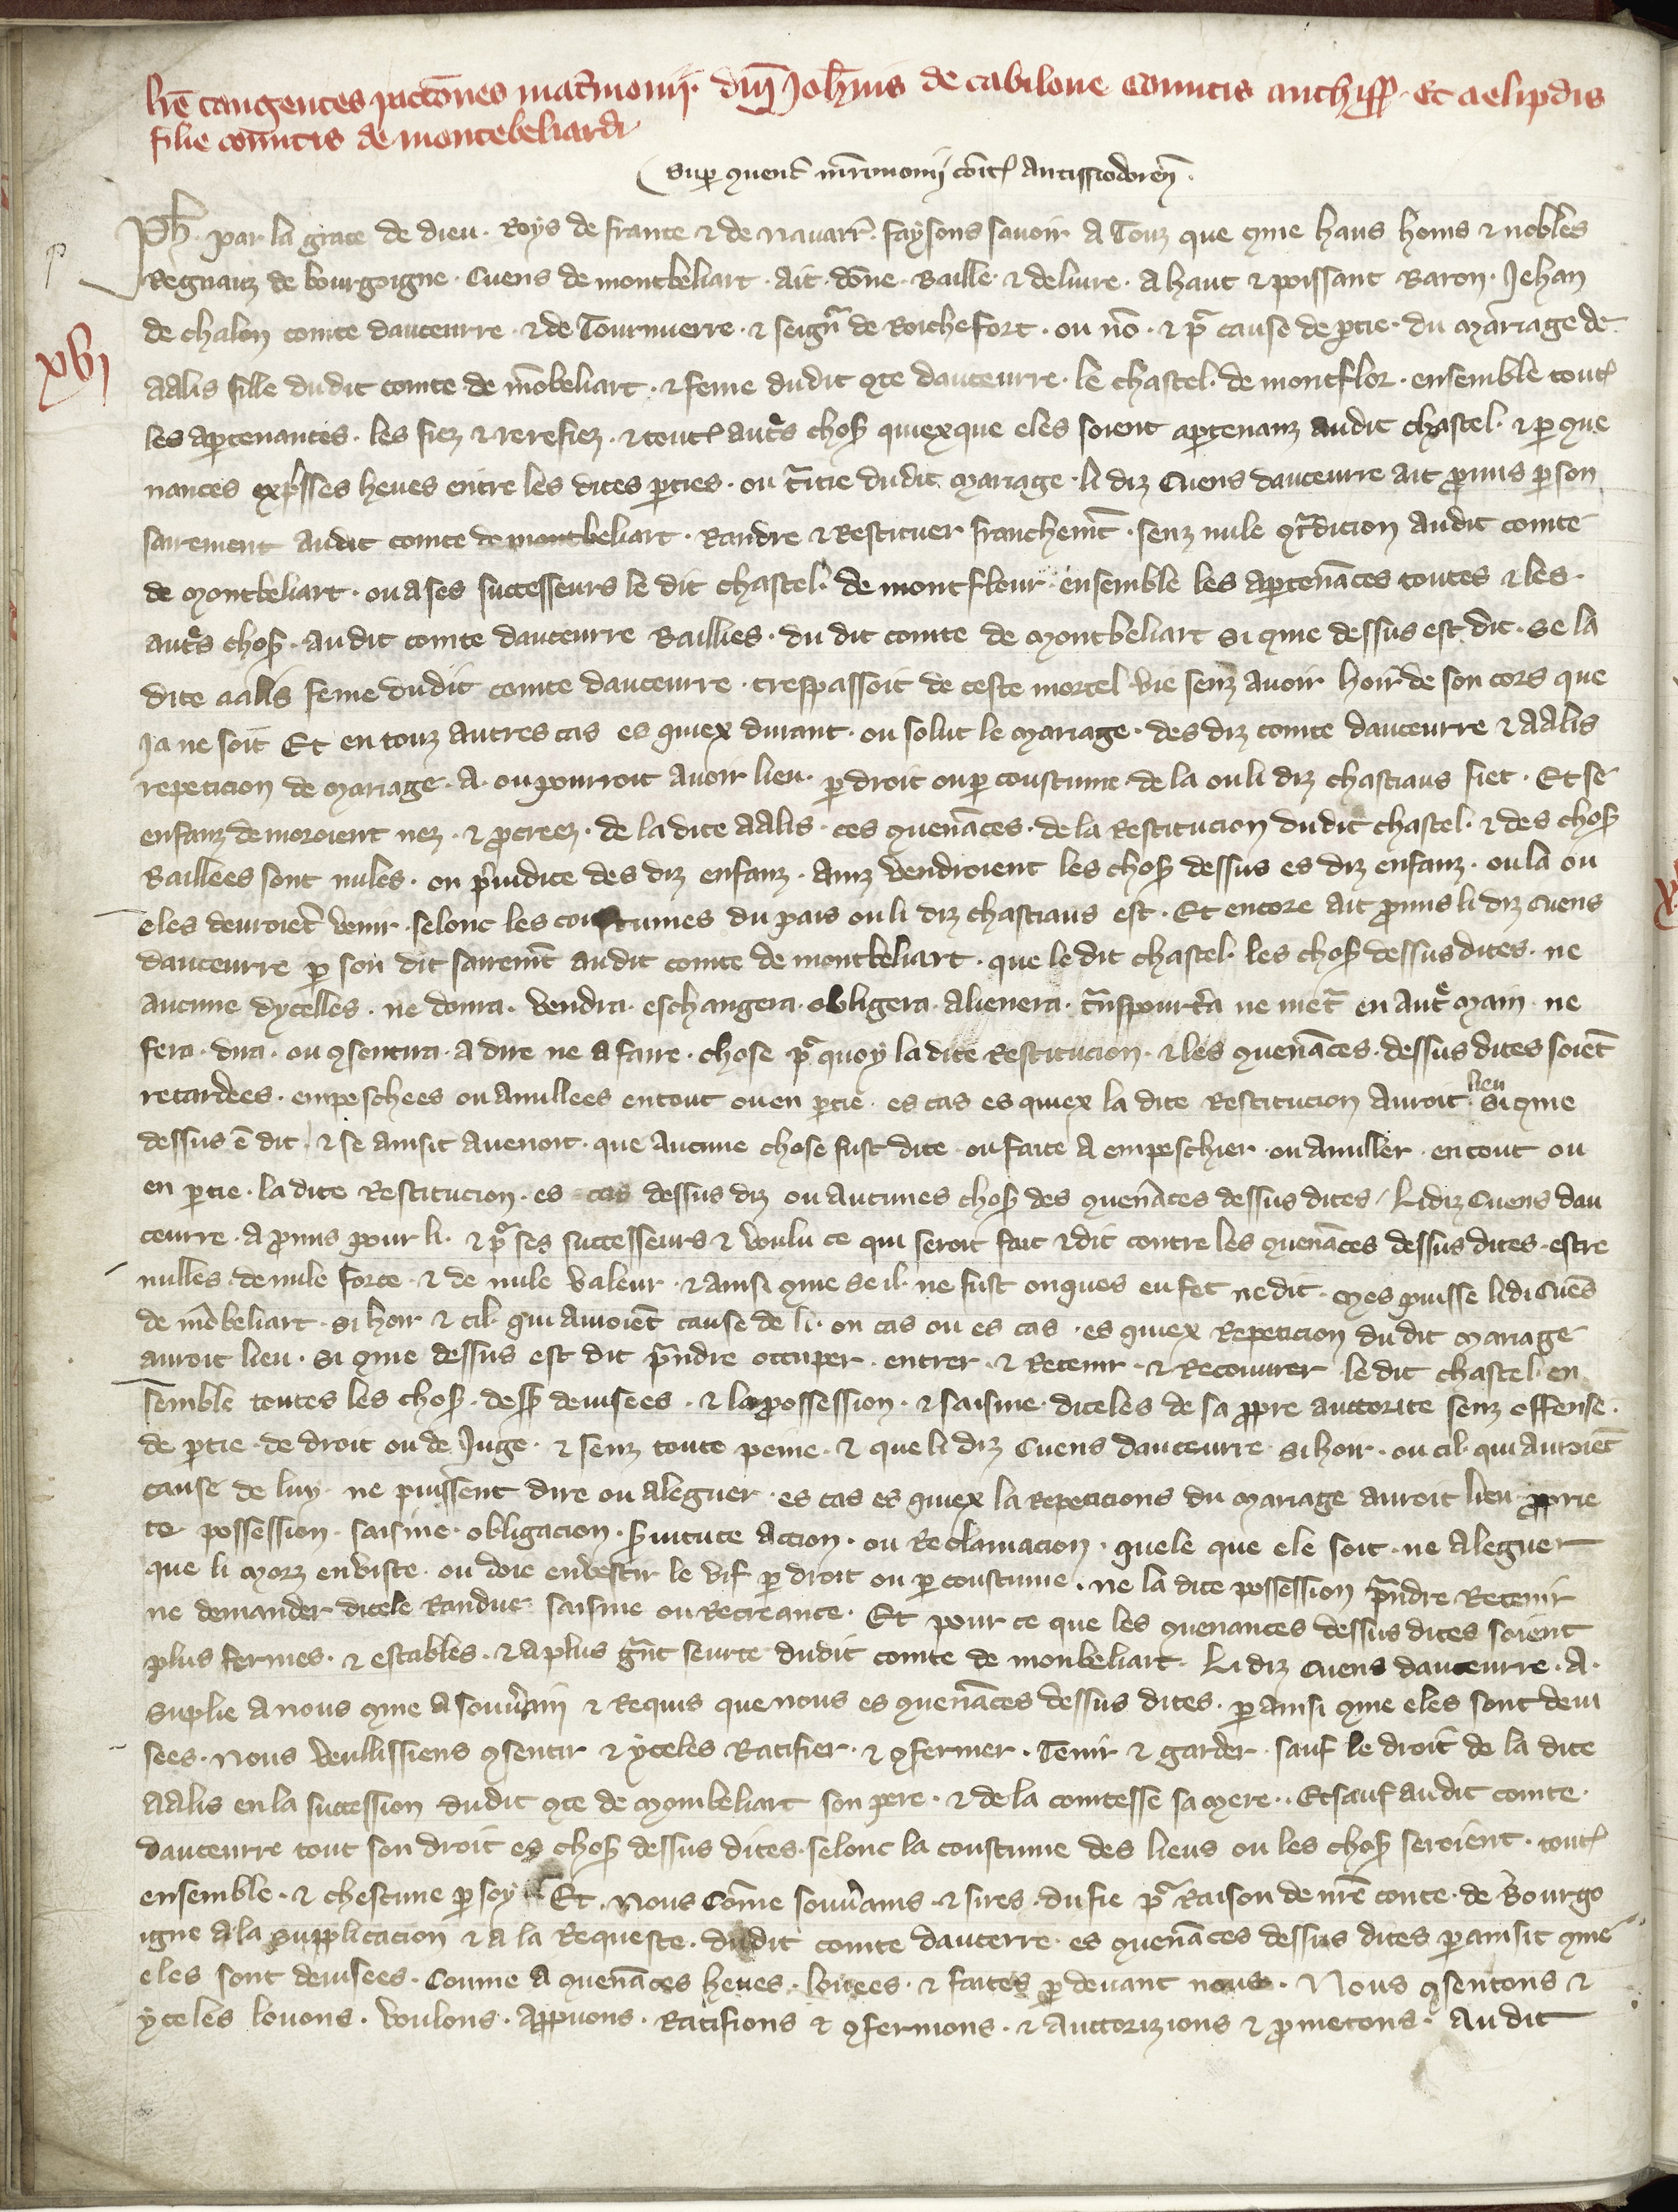 lr̃e tangentes pactões mat̃monii. dñi Joh̃nis de cabilone comitis anthiss̃. Et aelipdis
filie comitis de montebeliardi
Sup ꝯuent̃ mr̃imonii cõit̃ Antissiodoreñ.
Ph̃. par la grace de dieu. Roys de france ⁊ de nauarr̃. faysons sauoir A Touz que ꝯme haus homs ⁊ nobles
Regnauz de bourgoigne. Cuens de montbeliart. Ait. dõne. Baillie. ⁊ deliure. A haut ⁊ poissant Baron. Jehan
xvj
de chalon comte dauceurre. ⁊ de Tournuerre. ⁊ seigñr de Roichefort. ou nõ. ⁊ pr̃ cause de ptie. du Mariage de
Aalis fille dudit comte de mõbeliart. ⁊ feme dudit ꝯte dauceurre. le chastel. de montflor. ensemble tout̃
les aptenances. les fiez ⁊ rerefiez. ⁊ tout̃ aut̃s chos̃ quiexque eles soient aptenanz audit chastel. ⁊ p ꝯue
nances exp̃sses heues entre les dites pties. ou t̃itie dudit Mariage. li diz Cuens dauceurre ait pmis p son
sairement audit comte de montbeliart. Randre ⁊ Restituer franchem̃t. senz nule ꝯt̃dicion audit comte
de Montbeliart. ou a ses successeurs le dit chastel. de montfleur. ensemble les aptenãces toutes ⁊ les.
aut̃s chos̃. audit comte dauceurre Baillies. du dit comte de Montbeliart si ꝯme dessus est dit. se la
dite aalis feme dudit comte dauceurre. trespassoit de ceste mortel vie senz auoir hoir de son cors que
Ja ne soit Et en touz autres cas es quiex durant. ou solut le Mariage. des diz comte dauceurre ⁊ AAlis
repeticion de Mariage. A. ou pourroit auoir lieu. p droit ou p coustume. de la ou li diz chastiaus siet. Et se
enfanz demoroient nez. ⁊ pcreez. de la dite AAlis. ces ꝯuenãces. de la Restitucion dudit chastel. ⁊ des chos̃
Baillees sont nules. ou p̃iudice des diz enfanz. Ainz vendroient les chos̃ dessus es diz enfanz. ou la ou
eles deuroiẽt venir. selonc les coustumes du pais ou li diz chastiaus est. Et encore Ait pmis li diz Cuens
dauceurre p son dit sairem̃t audit comte de montbeliart. que le dit chastel. les chos̃ dessus dites. ne
aucune dycelles. ne donra. vendra. eschangera. obligera. Alienera. t̃nspourt̃a ne met̃ en Aut̃ Main. ne
fera. dira. ou ꝯsentira. A dire ne A faire. chose pr̃ quoy la dite Restitucion. ⁊ les ꝯuenãces. dessus dites soiẽt
retardees. empeschees ou Anullees en tout ou en ptie. es cas es quiex la dite Restitucion Auroit lieu si ꝯme
dessus ẽ dit. ⁊ se Ainsit Auenoit. que Aucune chose fust dite. ou faite A empeschier. ou Anuller. en tout ou
en ptie. la dite Restitucion. es cas dessus diz ou Aucunes chos̃ des ꝯuenãces dessus dites. Li diz Cuens dau
ceurre. A pmis pour li. ⁊ pr̃ ses successeurs ⁊ voulu ce qui seroit fait ⁊ dit contre les ꝯuenãces dessus dites. estre
nulles. de nule force. ⁊ de nule valeur. ⁊ ainsi ꝯme se il. ne fust onques eu fet ne dit. Mes puisse li di Cuẽs
de mõbeliart. si hoir ⁊ cil. qui Auroiẽt cause de li. ou cas ou es cas. es quiex Repeticion du dit Mariage
auroit lieu. si ꝯme dessus est dit p̃ndre occuper. entrer. ⁊ Retenir. ⁊ Recouurer. le dit chastel. en
semble toutes les chos̃. dess̃ deuisees. ⁊ la possession. ⁊ saisine. diceles de sa ppre auctorite senz offense.
de ptie. de droit ou de Juge. ⁊ senz toute peine. ⁊ que li diz Cuens dauceurre. si hoir. ou cil. qui Auroiẽt
cause de luy. ne puissent dire ou Aleguer. es cas es quiex la Repeticions du Mariage auroit lieu pprie
te possession. saisine. obligacion. s̃uitute Accion. ou Reclamacion. quele que ele soit. ne Aleguer
que li Morz enviste. ou doie enuestir le vif p droit ou p coustume. ne la dite possession p̃ndre Retenir
ne demander dicele Randue saisine ou Recreance. Et pour ce que les ꝯuenances dessus dites soient
plus fermes. ⁊ estables. ⁊ a plus gr̃nt seurte dudit comte de monbeliart. Li diz Cuens dauceurre. A.
Suplie A nous ꝯme A souũain ⁊ Requis que nous es ꝯuenãces dessus dites. p ainsi ꝯme eles sont deui
sees. Nous veullissiens ꝯsentir ⁊ yceles Ratifier. ⁊ ꝯfermer. Tenir ⁊ garder. sauf le droit de la dite
AAlis en la succession dudit ꝯte de Mombeliart son pere. ⁊ de la comtesse sa Mere. Et sauf audit comte.
dauceurre tout son droit es chos̃ dessus dites. selonc la coustume des lieus ou les chos̃ seroient. tout̃
ensemble. ⁊ chescune p soy Et. Nous Cõme souũains. ⁊ sires. du fie pr̃ Raison de nr̃e conte. de Bourgo
igne A la Supplicacion ⁊ A la Requeste. dudit comte daucerre. es ꝯuenãces dessus dites p ainsit ꝯme
eles sont deuisees. Comme A ꝯuenãces heues. louees. ⁊ faites p deuant nous. Nous ꝯsentons ⁊
yceles louons. voulons. Appuons. Ratifions ⁊ ꝯfermons. ⁊ Auctorizions ⁊ pmetons. Audit